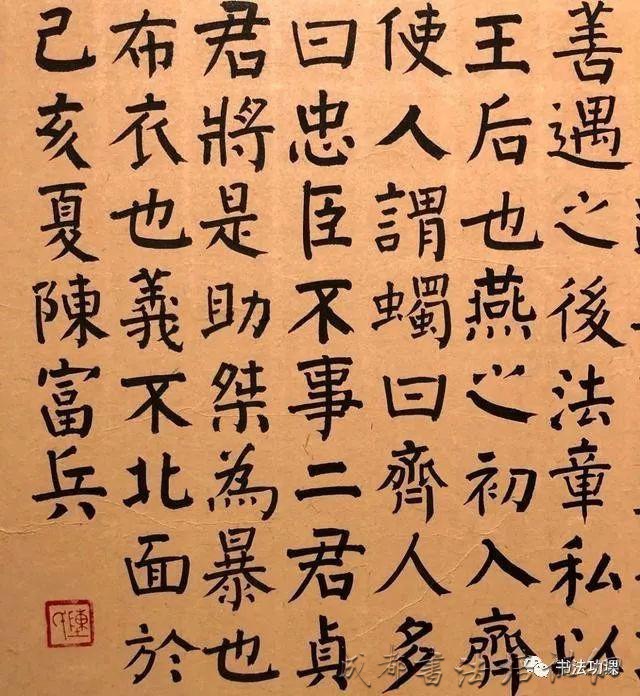 善遇之後法章私以
王后也燕之初入齊
使人謂蠋曰齊人多
曰忠臣不事二君貞
君將是助桀為暴也
布衣也義不北面於
己亥夏陳富兵
书法功课